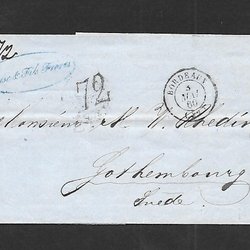 72
& Fils Frères
72
BORDEAUX
5
MAI
60
Monsieur N. W.
Gothembourg
Suède